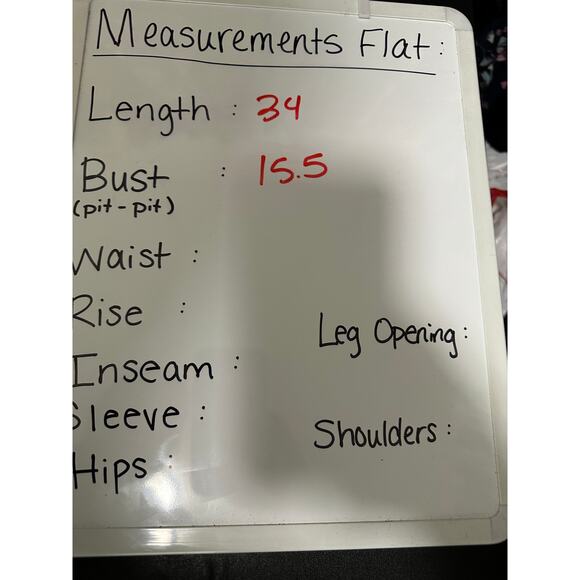 Measurements Flat:
Length : 34
Bust : 15.5
(pit-pit)
Waist :
Rise :
Leg Opening :
Inseam :
Sleeve :
Shoulders :
Hips :